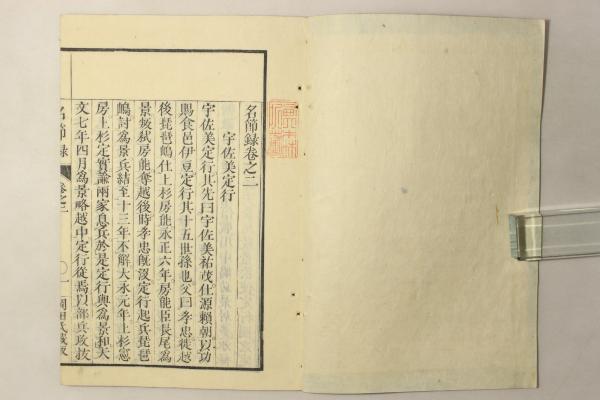 名節録卷之二
宇佐美定行
宇佐美定行其先曰宇佐美祐茂仕源賴朝以功
賜食邑伊豆定行其十五世孫也父曰孝忠徙越
後琵琶嶋仕上杉房能永正六年房能臣長尾為
景叛弑房能奪越後時孝忠既沒定行起兵琵琶
嶋討為景兵結至十三年不解大永元年上杉憲
房上杉定實諭兩家息兵於是定行與為景和天
文七年四月為景略越中定行從焉以部兵攻拔
名節録
卷之二
○一
岡田氏藏版